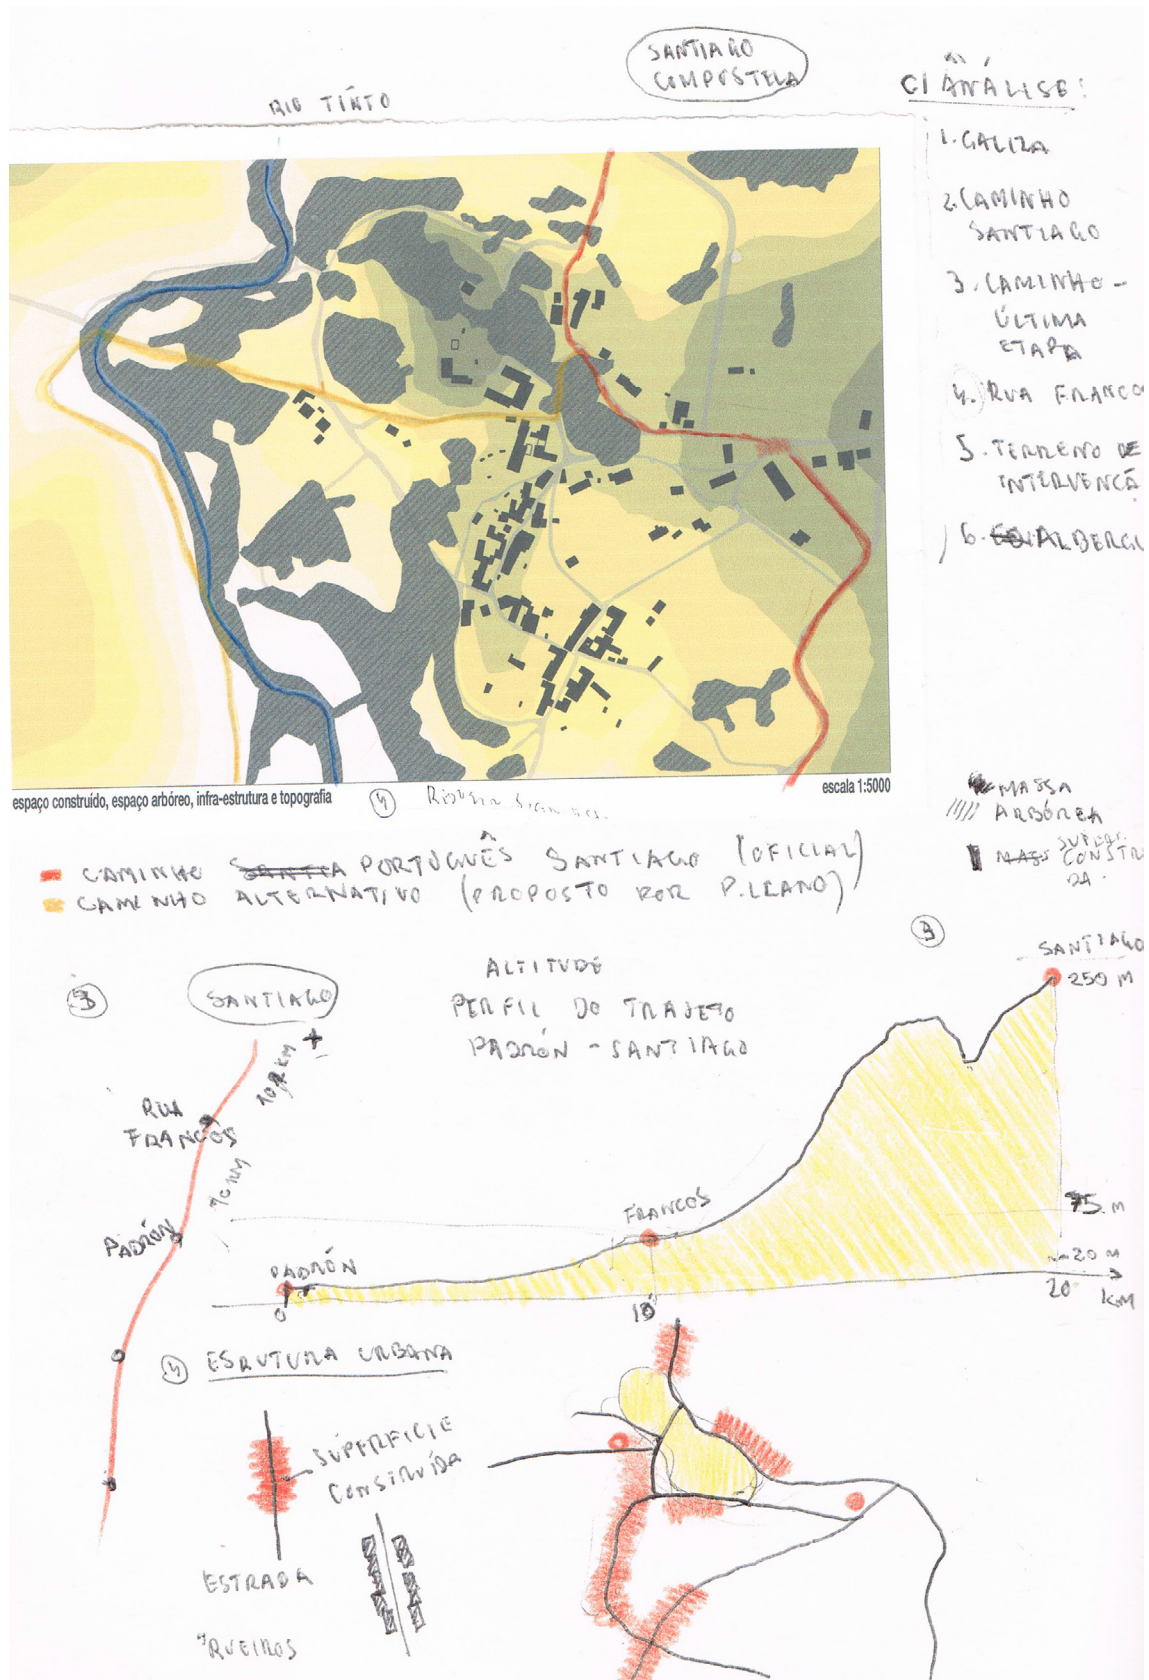 SANTIAGO
COMPOSTELA
RIO TINTO
C/ ANÁLISE:
1. GALIZA
2. CAMINHO
SANTIAGO
3. CAMINHO -
ÚLTIMA
ETAPA
4. RUA FRANCO
5. TERRENO DE
INTERVENCÃ
6. ALBERGU
espaço construído, espaço arbóreo, infra-estrutura e topografia
4
escala 1:5000
MASSA
ARBÓREA
SUPERF.
CONSTRU
DA.
CAMINHO PORTUGUÊS SANTIAGO (OFICIAL)
CAMINHO ALTERNATIVO (PROPOSTO POR P.LLANO)
3
SANTIAGO
250 M
3
SANTIAGO
ALTITUDE
PERFIL DO TRAJETO
PADRÓN - SANTIAGO
RUA
FRANCOS
10 KM
PADRÓN
FRANCOS
75 M
PADRÓN
20 M
0
10
20
KM
4 ESRUTURA URBANA
SUPERFICIE
CONSTRUÍDA
ESTRADA
"RUEIROS